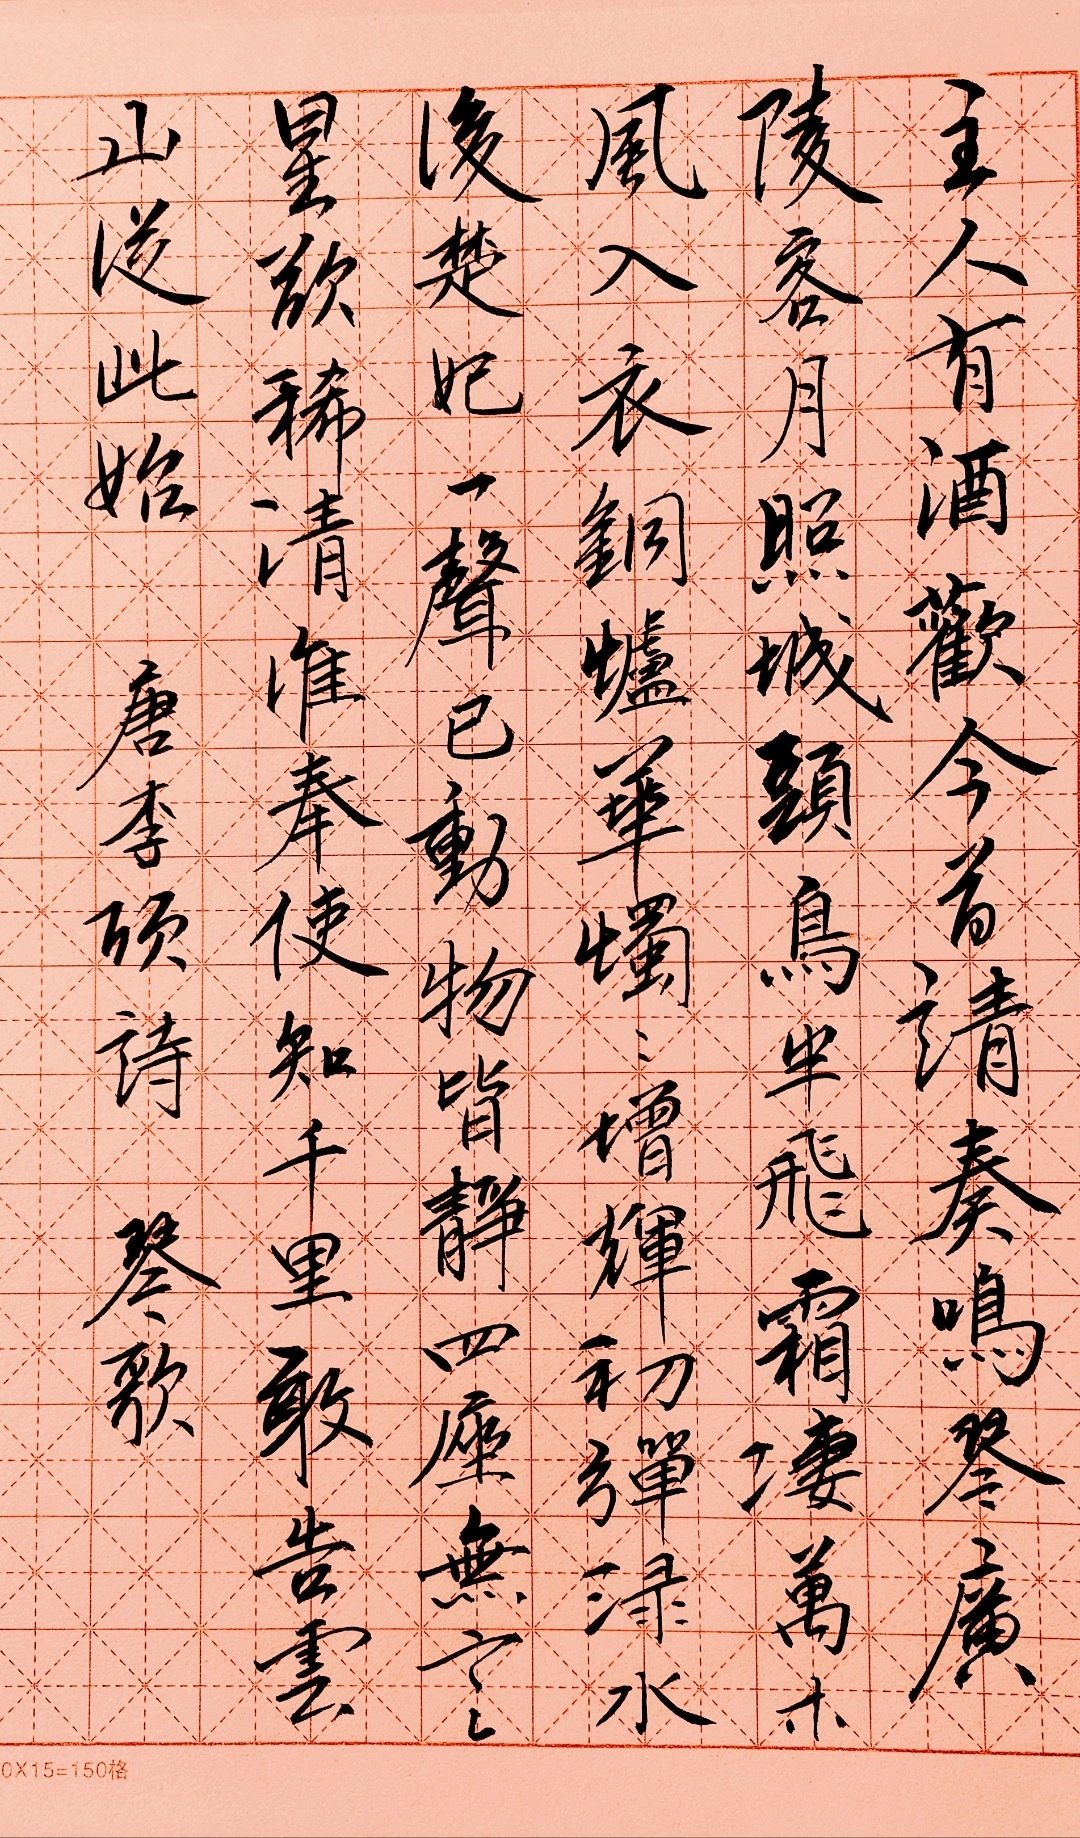 主人有酒歡今昔請奏鳴琴廣
陵客月照城頭烏半飛霜淒萬木
風入衣銅爐華燭々增輝初彈淥水
後楚妃一聲已動物皆靜四座無言
星欲稀清淮奉使知千里敢告雲
山從此始 唐李頎詩 琴歌
0X15=150格